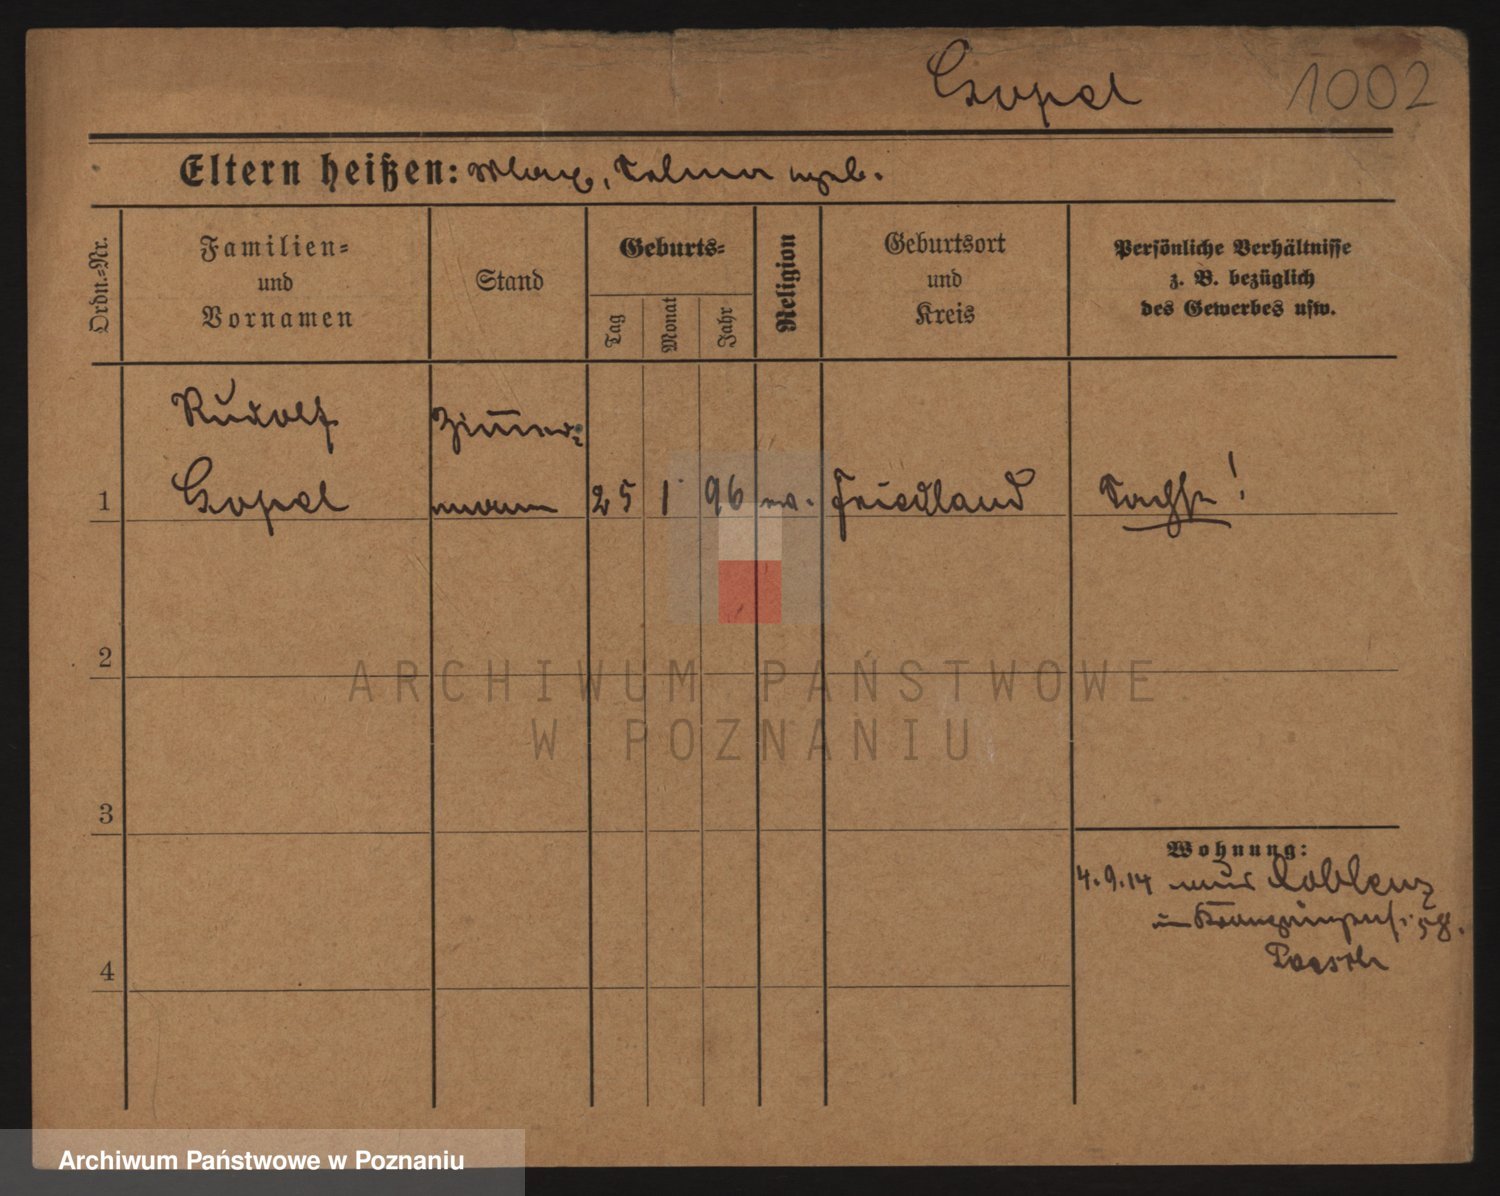 Gopel 1002
Eltern heißen: Max, Selma geb.
Ordn.=Nr.
Familien=
und
Vornamen
Stand
Geburts=
Tag
Monat
Jahr
Religion
Geburtsort
und
Kreis
Persönliche Verhältnisse
z. B. bezüglich
des Gewerbes usw.
Rudolf Zimmer=
1 Gopel mann 25 1 96 ev. Friedland Sachse!
2
ARCHIWUM PAŃSTWOWE
W POZNANIU
3
Wohnung:
4.9.14 Coblenz
58.
4
Archiwum Państwowe w Poznaniu